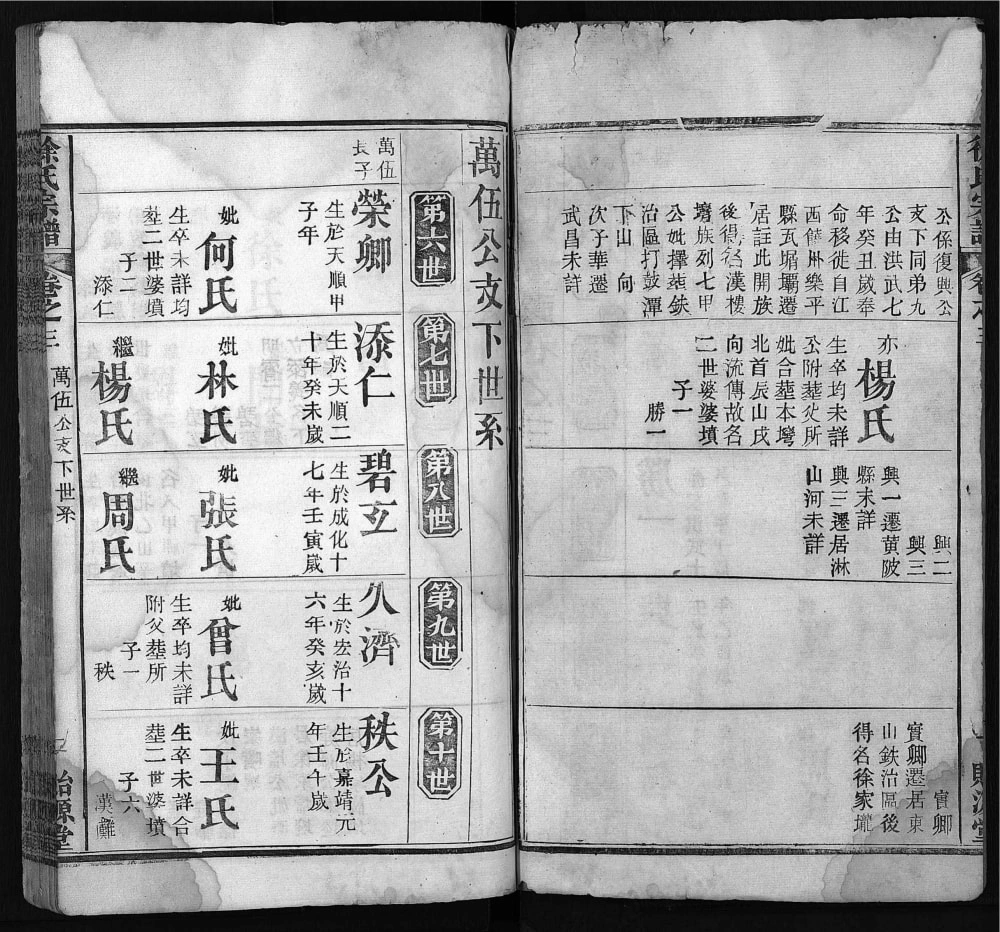 徐氏宗譜
卷之三
公係復興公
支下同弟九
公由洪武七
年癸丑歲奉
命移徙自江
西饒州樂平
縣瓦塥壩遷
居註此開族
後得名漢樓
壪族列七甲
公妣擇葬鉄
治區打鼓潭
下山　向
次子華遷
武昌未詳
亦
楊氏
生卒均未詳
公附葬父所
妣合葬本壪
北首辰山戌
向流傳故名
二世婆婆墳
子一
勝一
興二
興三
興一遷黄陂
縣未詳
興三遷居淋
山河未詳
賓卿
實卿遷居東
山鉄治區後
得名徐家壠
萬伍公支下世系
第六世
第七世
第八世
第九世
第十世
萬伍
長子
榮卿
生於天順甲
子年
妣
何氏
生卒未詳均
葬二世婆墳
子二
添仁
添仁
生於天順二
十年癸未歲
妣
林氏
繼
楊氏
碧玄
生於成化十
七年壬寅歲
妣
張氏
繼
周氏
久濟
生於宏治十
六年癸亥歲
妣
曾氏
生卒均未詳
附父葬所
子一
秩
秩公
生於嘉靖元
年壬午歲
妣
王氏
生卒未詳合
葬二世婆墳
子六
漢離
徐氏宗譜
卷之三
萬伍公支下世系
貽源堂